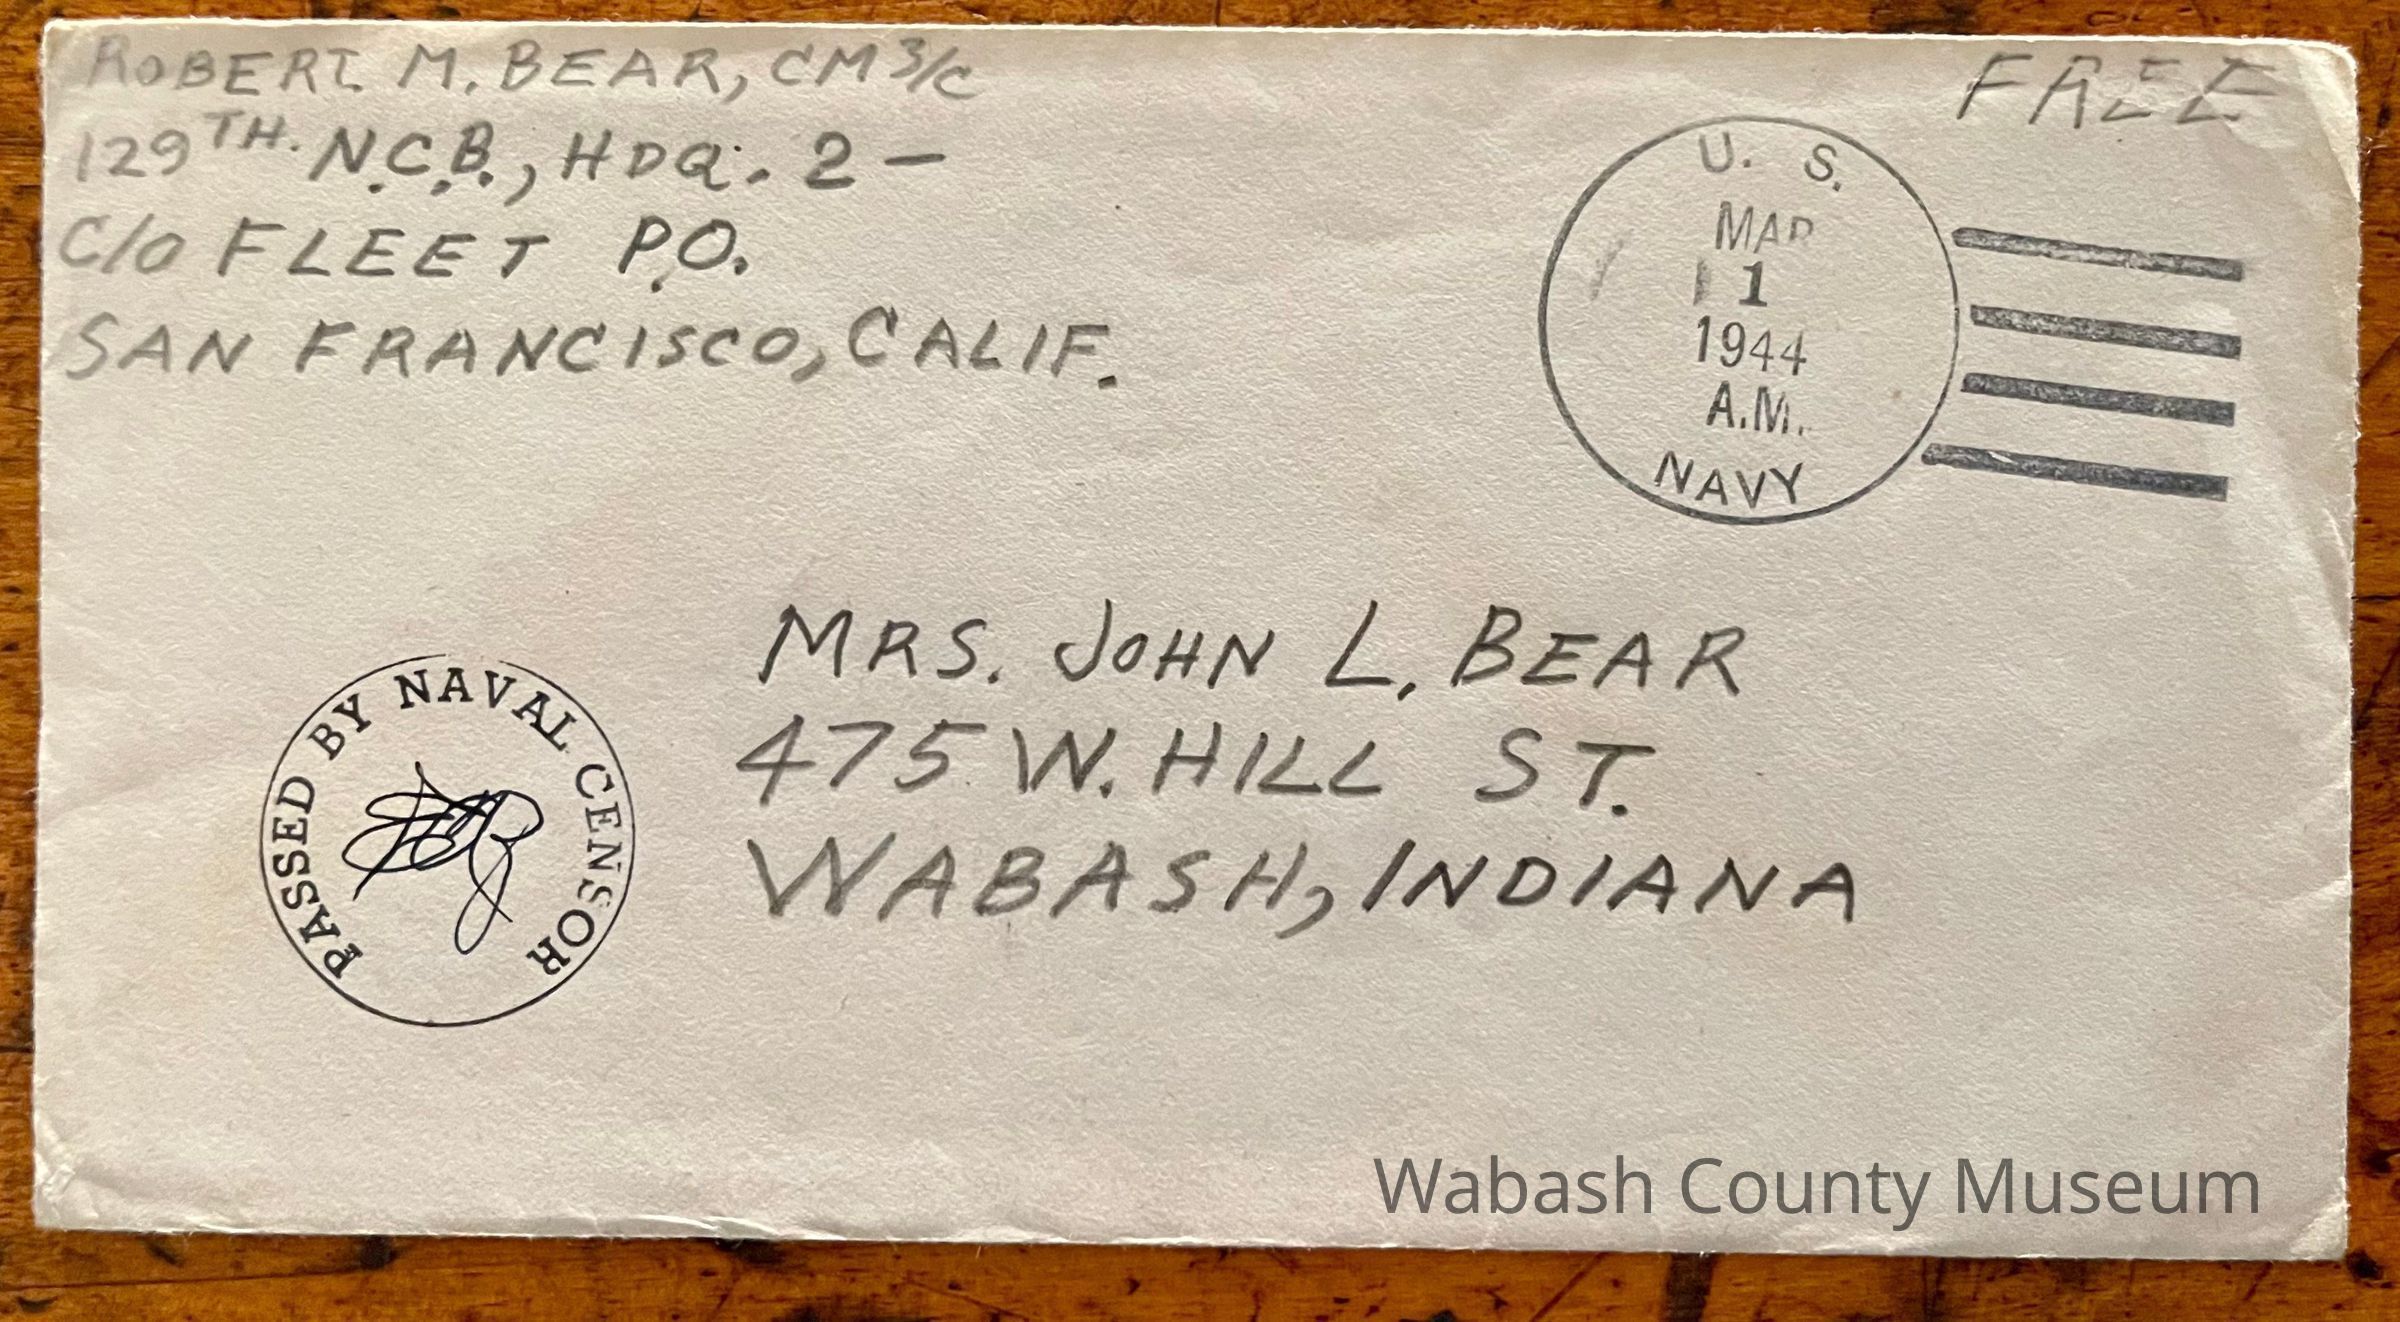 ROBERT M. BEAR, CM 3/C
129TH. N.C.B., HDQ. 2 —
C/O FLEET P.O.
SAN FRANCISCO, CALIF.
FREE
U. S.
MAR
1
1944
A.M.
NAVY
PASSED BY NAVAL CENSOR
MRS. JOHN L. BEAR
475 W. HILL ST.
WABASH, INDIANA
Wabash County Museum